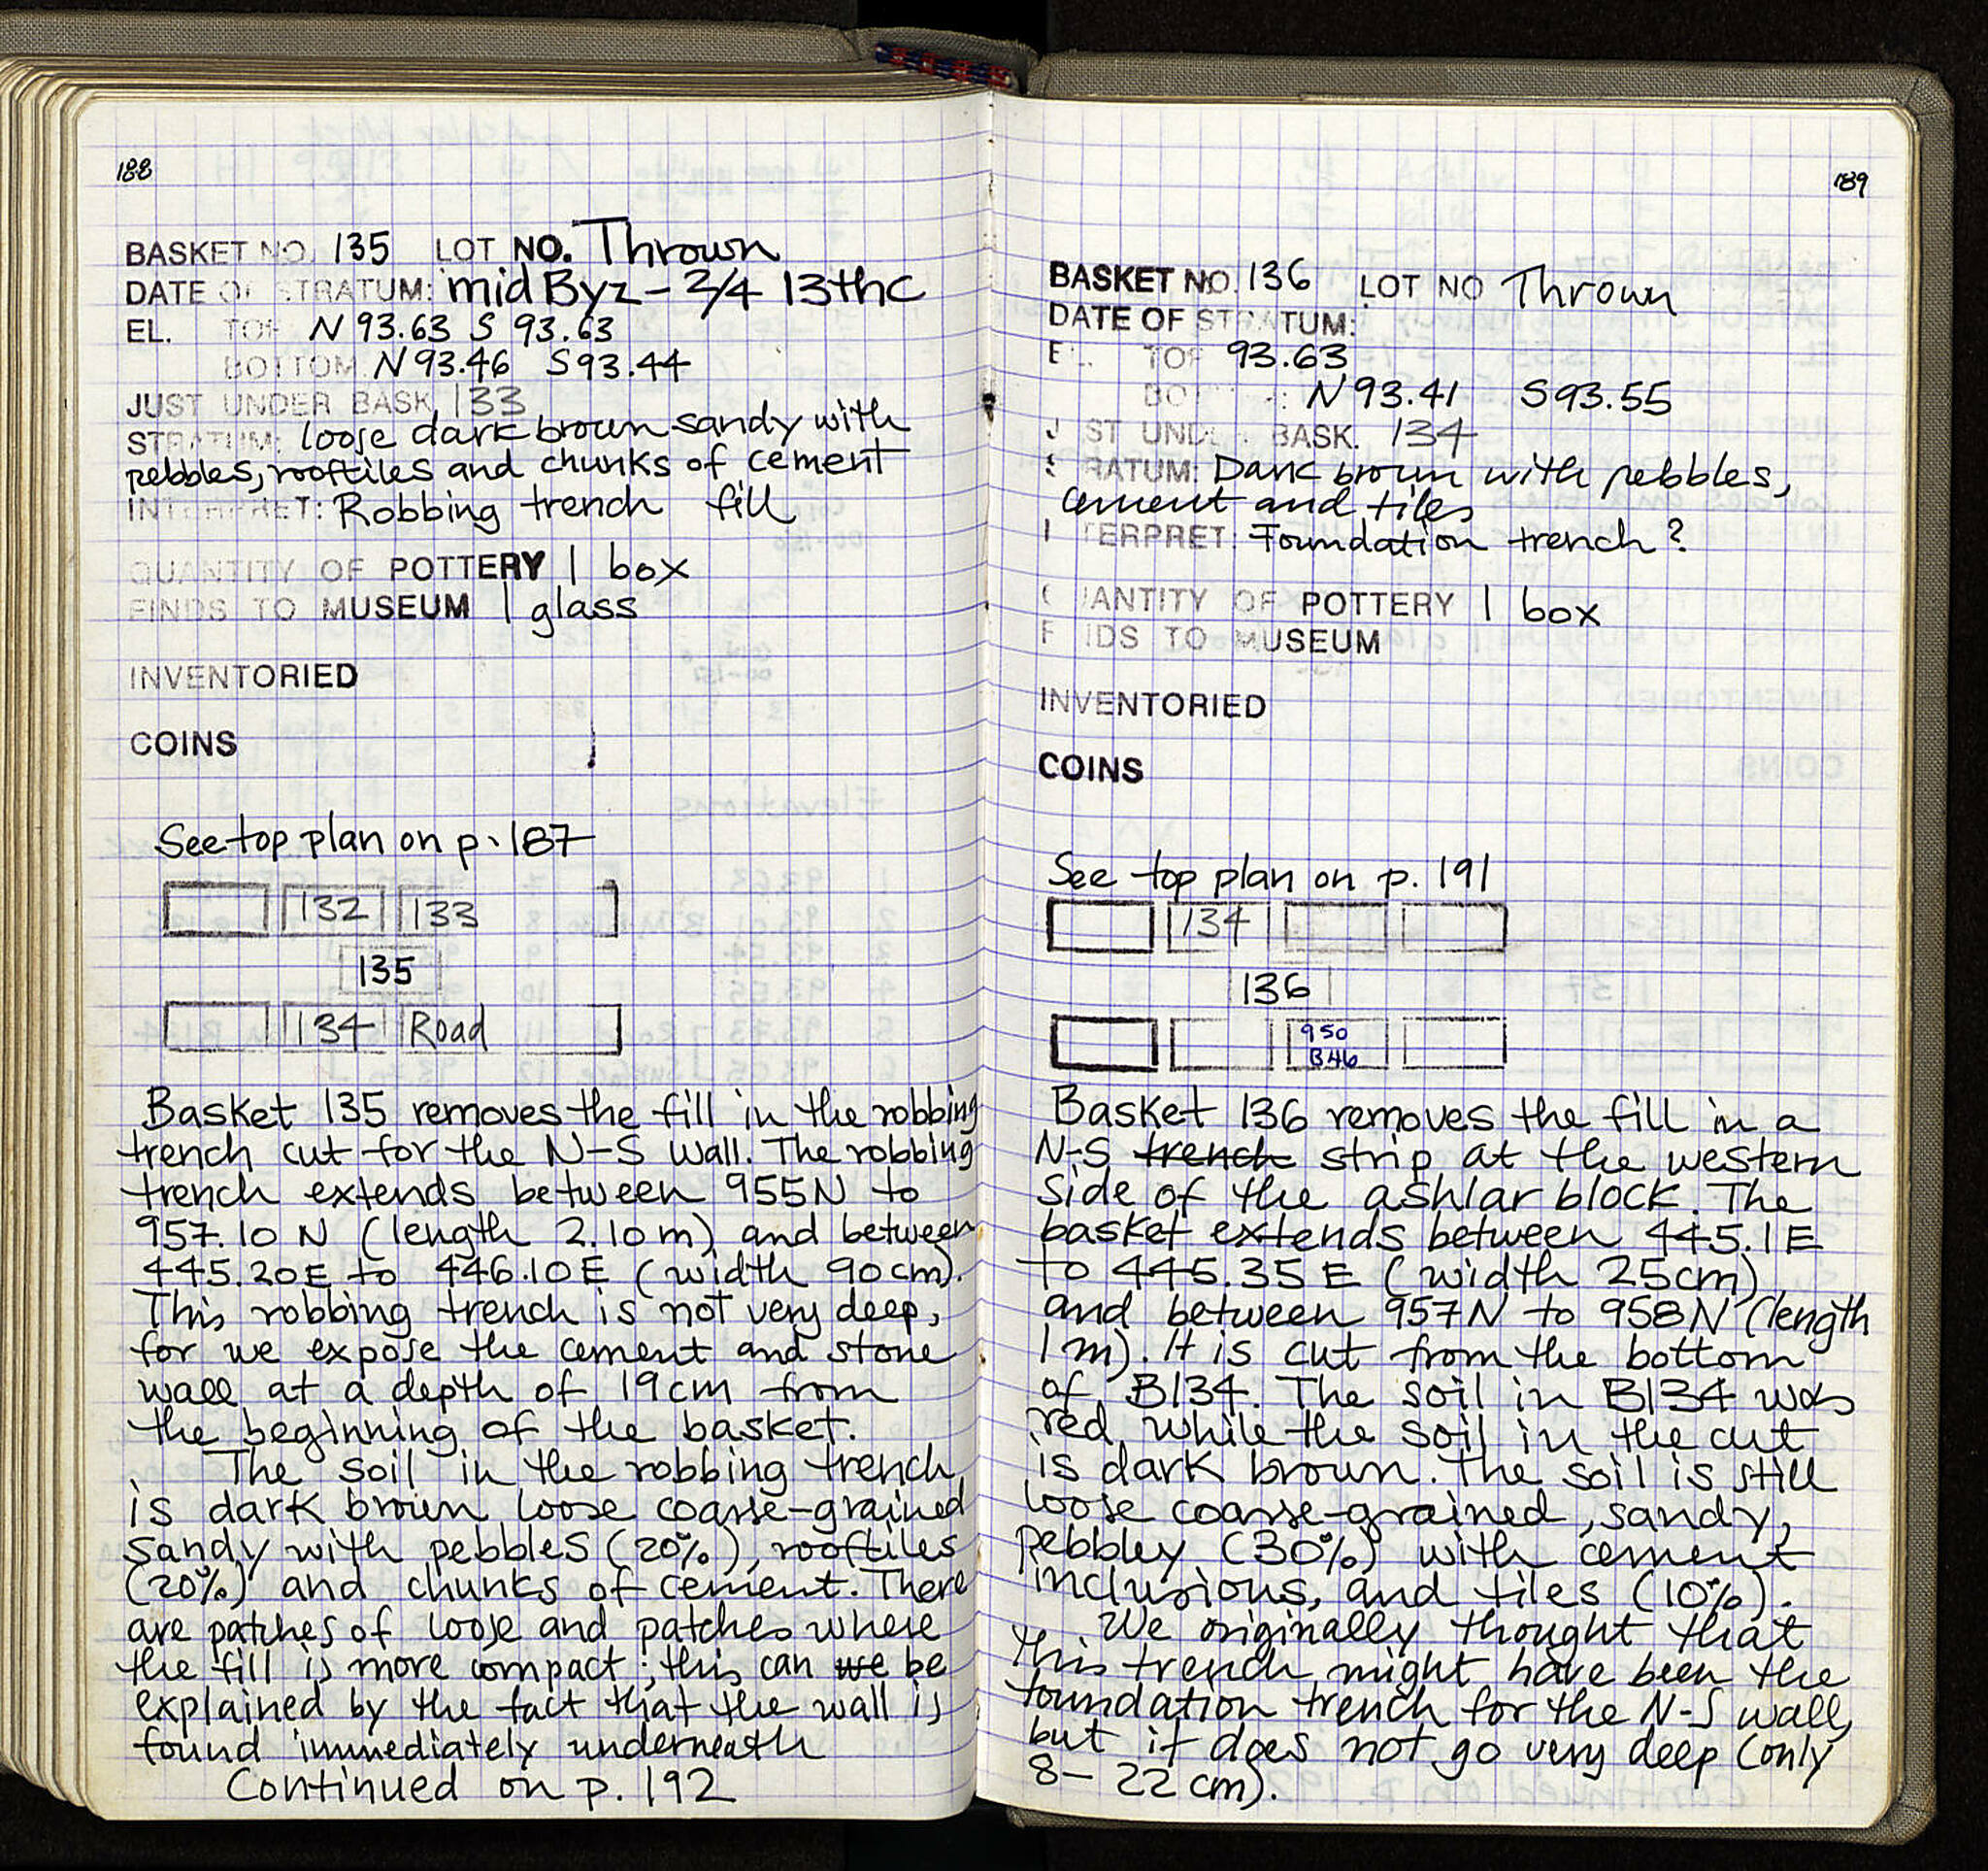 188
BASKET NO. 135 LOT NO. Thrown
DATE OF STRATUM: mid Byz - 2/4 13th c
EL. TOP N 93.63 S 93.63
BOTTOM: N 93.46 S 93.44
JUST UNDER BASK. 133
STRATUM: loose dark brown sandy with
pebbles, rooftiles and chunks of cement
INTERPRET: Robbing trench fill
QUANTITY OF POTTERY 1 box
FINDS TO MUSEUM 1 glass
INVENTORIED
COINS
See top plan on p. 187
132 133
135
134 Road
Basket 135 removes the fill in the robbing
trench cut for the N-S wall. The robbing
trench extends between 955N to
957.10 N (length 2.10 m) and between
445.20E to 446.10E (width 90cm).
This robbing trench is not very deep,
for we expose the cement and stone
wall at a depth of 19cm from
the beginning of the basket.
The soil in the robbing trench
is dark brown loose coarse-grained
sandy with pebbles (20%), rooftiles
(20%) and chunks of cement. There
are patches of loose and patches where
the fill is more compact; this can we be
explained by the fact that the wall is
found immediately underneath
Continued on p. 192
189
BASKET NO. 136 LOT NO Thrown
DATE OF STRATUM:
EL. TOP 93.63
BOTTOM: N 93.41 S 93.55
JUST UNDER BASK. 134
STRATUM: Dark brown with pebbles,
cement and tiles
INTERPRET: Foundation trench?
QUANTITY OF POTTERY 1 box
FINDS TO MUSEUM
INVENTORIED
COINS
See top plan on p. 191
134
136
950
B46
Basket 136 removes the fill in a
N-S trench strip at the western
side of the ashlar block. The
basket extends between 445.1E
to 445.35 E (width 25cm)
and between 957N to 958N (length
1m). It is cut from the bottom
of B134. The soil in B134 was
red, while the soil in the cut
is dark brown. The soil is still
loose coarse-grained, sandy,
pebbley (30%) with cement
inclusions, and tiles (10%).
We originally thought that
this trench might have been the
foundation trench for the N-S wall,
but it does not go very deep (only
8-22 cm).